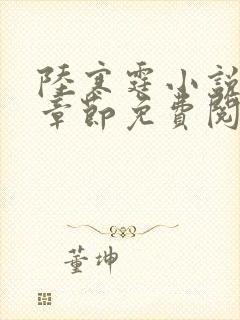 陸寒霆小說
章節免費閱
董坤